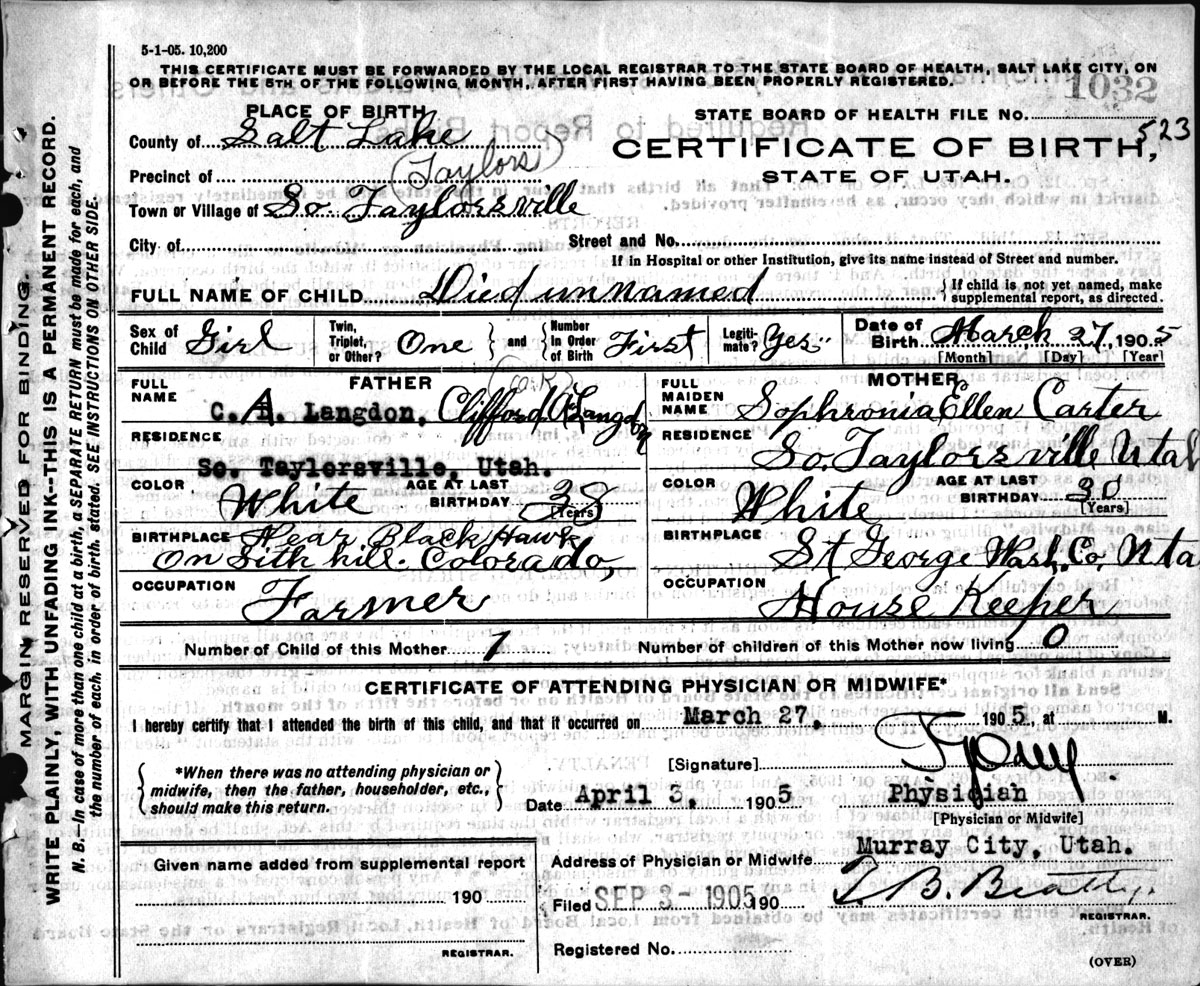 5-1-05. 10,200
THIS CERTIFICATE MUST BE FORWARDED BY THE LOCAL REGISTRAR TO THE STATE BOARD OF HEALTH, SALT LAKE CITY, ON
OR BEFORE THE 5TH OF THE FOLLOWING MONTH, AFTER FIRST HAVING BEEN PROPERLY REGISTERED.
1032
PLACE OF BIRTH
STATE BOARD OF HEALTH FILE No.
523
County of Salt Lake
CERTIFICATE OF BIRTH,
(Taylors)
Precinct of
STATE OF UTAH.
Town or Village of So. Taylorsville
City of
Street and No.
If in Hospital or other Institution, give its name instead of Street and number.
FULL NAME OF CHILD Died unnamed
{If child is not yet named, make
supplemental report, as directed.
Sex of Child Girl
Twin, Triplet, or Other? One } and {
Number In Order of Birth First
Legiti-mate? Yes
Date of Birth March 27, 1905
[Month] [Day] [Year]
FATHER
FULL NAME C. A. Langdon, Clifford A Langdon
RESIDENCE
So. Taylorsville, Utah.
COLOR White
AGE AT LAST BIRTHDAY 38
(Years)
BIRTHPLACE Near Black Hawk
On Sith hill. Colorado,
OCCUPATION Farmer
MOTHER
FULL MAIDEN NAME Sophronia Ellen Carter
RESIDENCE So. Taylorsville Utah
COLOR White
AGE AT LAST BIRTHDAY 30
[Years]
BIRTHPLACE St George Wash. Co. Uta
OCCUPATION House Keeper
Number of Child of this Mother 1
Number of children of this Mother now living 0
CERTIFICATE OF ATTENDING PHYSICIAN OR MIDWIFE*
I hereby certify that I attended the birth of this child, and that it occurred on March 27. 1905, at M.
{*When there was no attending physician or
midwife, then the father, householder, etc.,
should make this return.}
[Signature]
Date April 3, 1905
Physician
[Physician or Midwife]
Given name added from supplemental report
190
REGISTRAR.
Address of Physician or Midwife Murray City, Utah.
Filed SEP 3 - 1905 190
T. B. Beatty.
REGISTRAR.
Registered No.
(OVER)
MARGIN RESERVED FOR BINDING.
WRITE PLAINLY, WITH UNFADING INK--THIS IS A PERMANENT RECORD.
N. B.--In case of more than one child at a birth, a SEPARATE RETURN must be made for each, and
the number of each, in order of birth, stated. SEE INSTRUCTIONS ON OTHER SIDE.